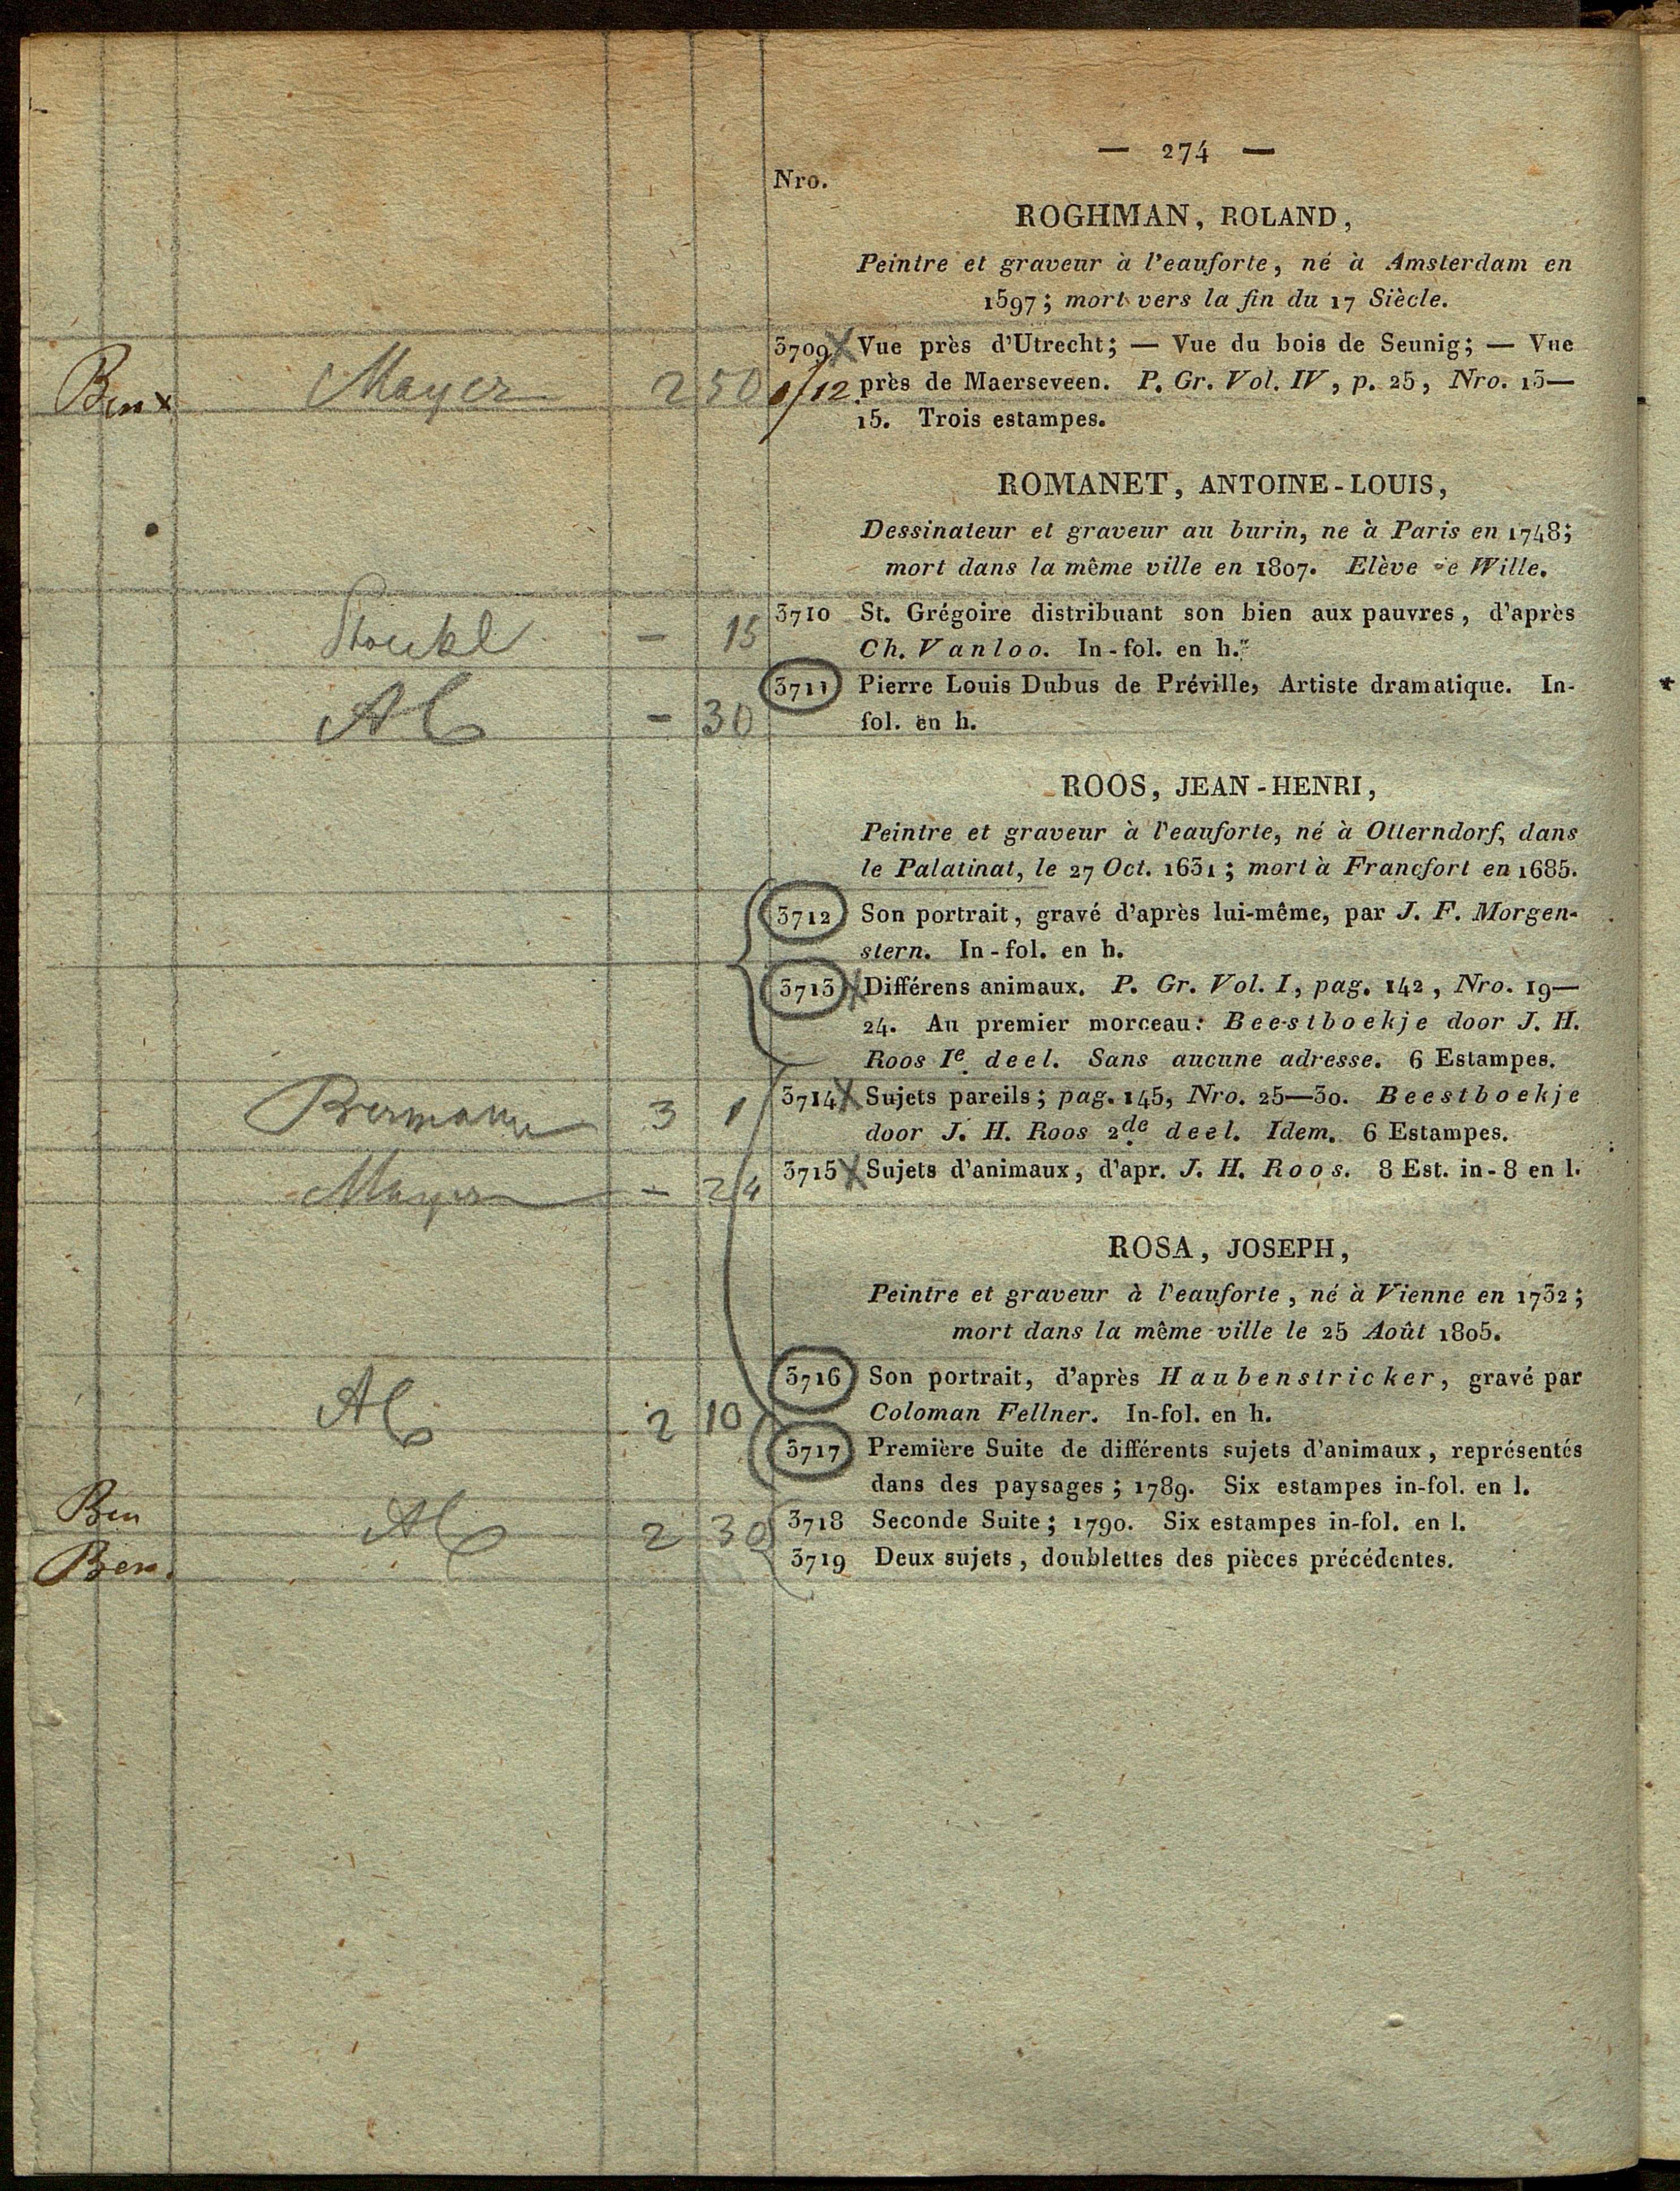 — 274 —
Nro.
ROGHMAN, ROLAND,
Peintre et graveur à l'eauforte, né à Amsterdam en
1597; mort vers la fin du 17 Siècle.
3709 Vue près d'Utrecht; — Vue du bois de Seunig; — Vue
Ben x Mayer 2 50 /12 près de Maerseveen. P. Gr. Vol. IV, p. 25, Nro. 13—
15. Trois estampes.
ROMANET, ANTOINE-LOUIS,
Dessinateur et graveur au burin, ne à Paris en 1748;
mort dans la même ville en 1807. Elève e Wille.
3710 St. Grégoire distribuant son bien aux pauvres, d'après
Stoekl — 15 Ch. Vanloo. In-fol. en h.
3711 Pierre Louis Dubus de Préville, Artiste dramatique. In-
Alb — 30 fol. en h.
ROOS, JEAN-HENRI,
Peintre et graveur à l'eauforte, né à Otterndorf, dans
le Palatinat, le 27 Oct. 1631; mort à Francfort en 1685.
3712 Son portrait, gravé d'après lui-même, par J. F. Morgen-
stern. In-fol. en h.
3713 Différens animaux. P. Gr. Vol. I, pag. 142, Nro. 19—
24. Au premier morceau: Beestboekje door J. H.
Roos Ie deel. Sans aucune adresse. 6 Estampes.
Bermann 3 1 3714 Sujets pareils; pag. 145, Nro. 25—30. Beestboekje
door J. H. Roos 2de deel. Idem. 6 Estampes.
Mayer — 24 3715 Sujets d'animaux, d'apr. J. H. Roos. 8 Est. in-8 en l.
ROSA, JOSEPH,
Peintre et graveur à l'eauforte, né à Vienne en 1732;
mort dans la même ville le 25 Août 1805.
3716 Son portrait, d'après Haubenstricker, gravé par
Alb 2 10 Coloman Fellner. In-fol. en h.
3717 Première Suite de différents sujets d'animaux, représentés
dans des paysages; 1789. Six estampes in-fol. en l.
Ben Alb 2 30 3718 Seconde Suite; 1790. Six estampes in-fol. en l.
Ben. 3719 Deux sujets, doublettes des pièces précédentes.